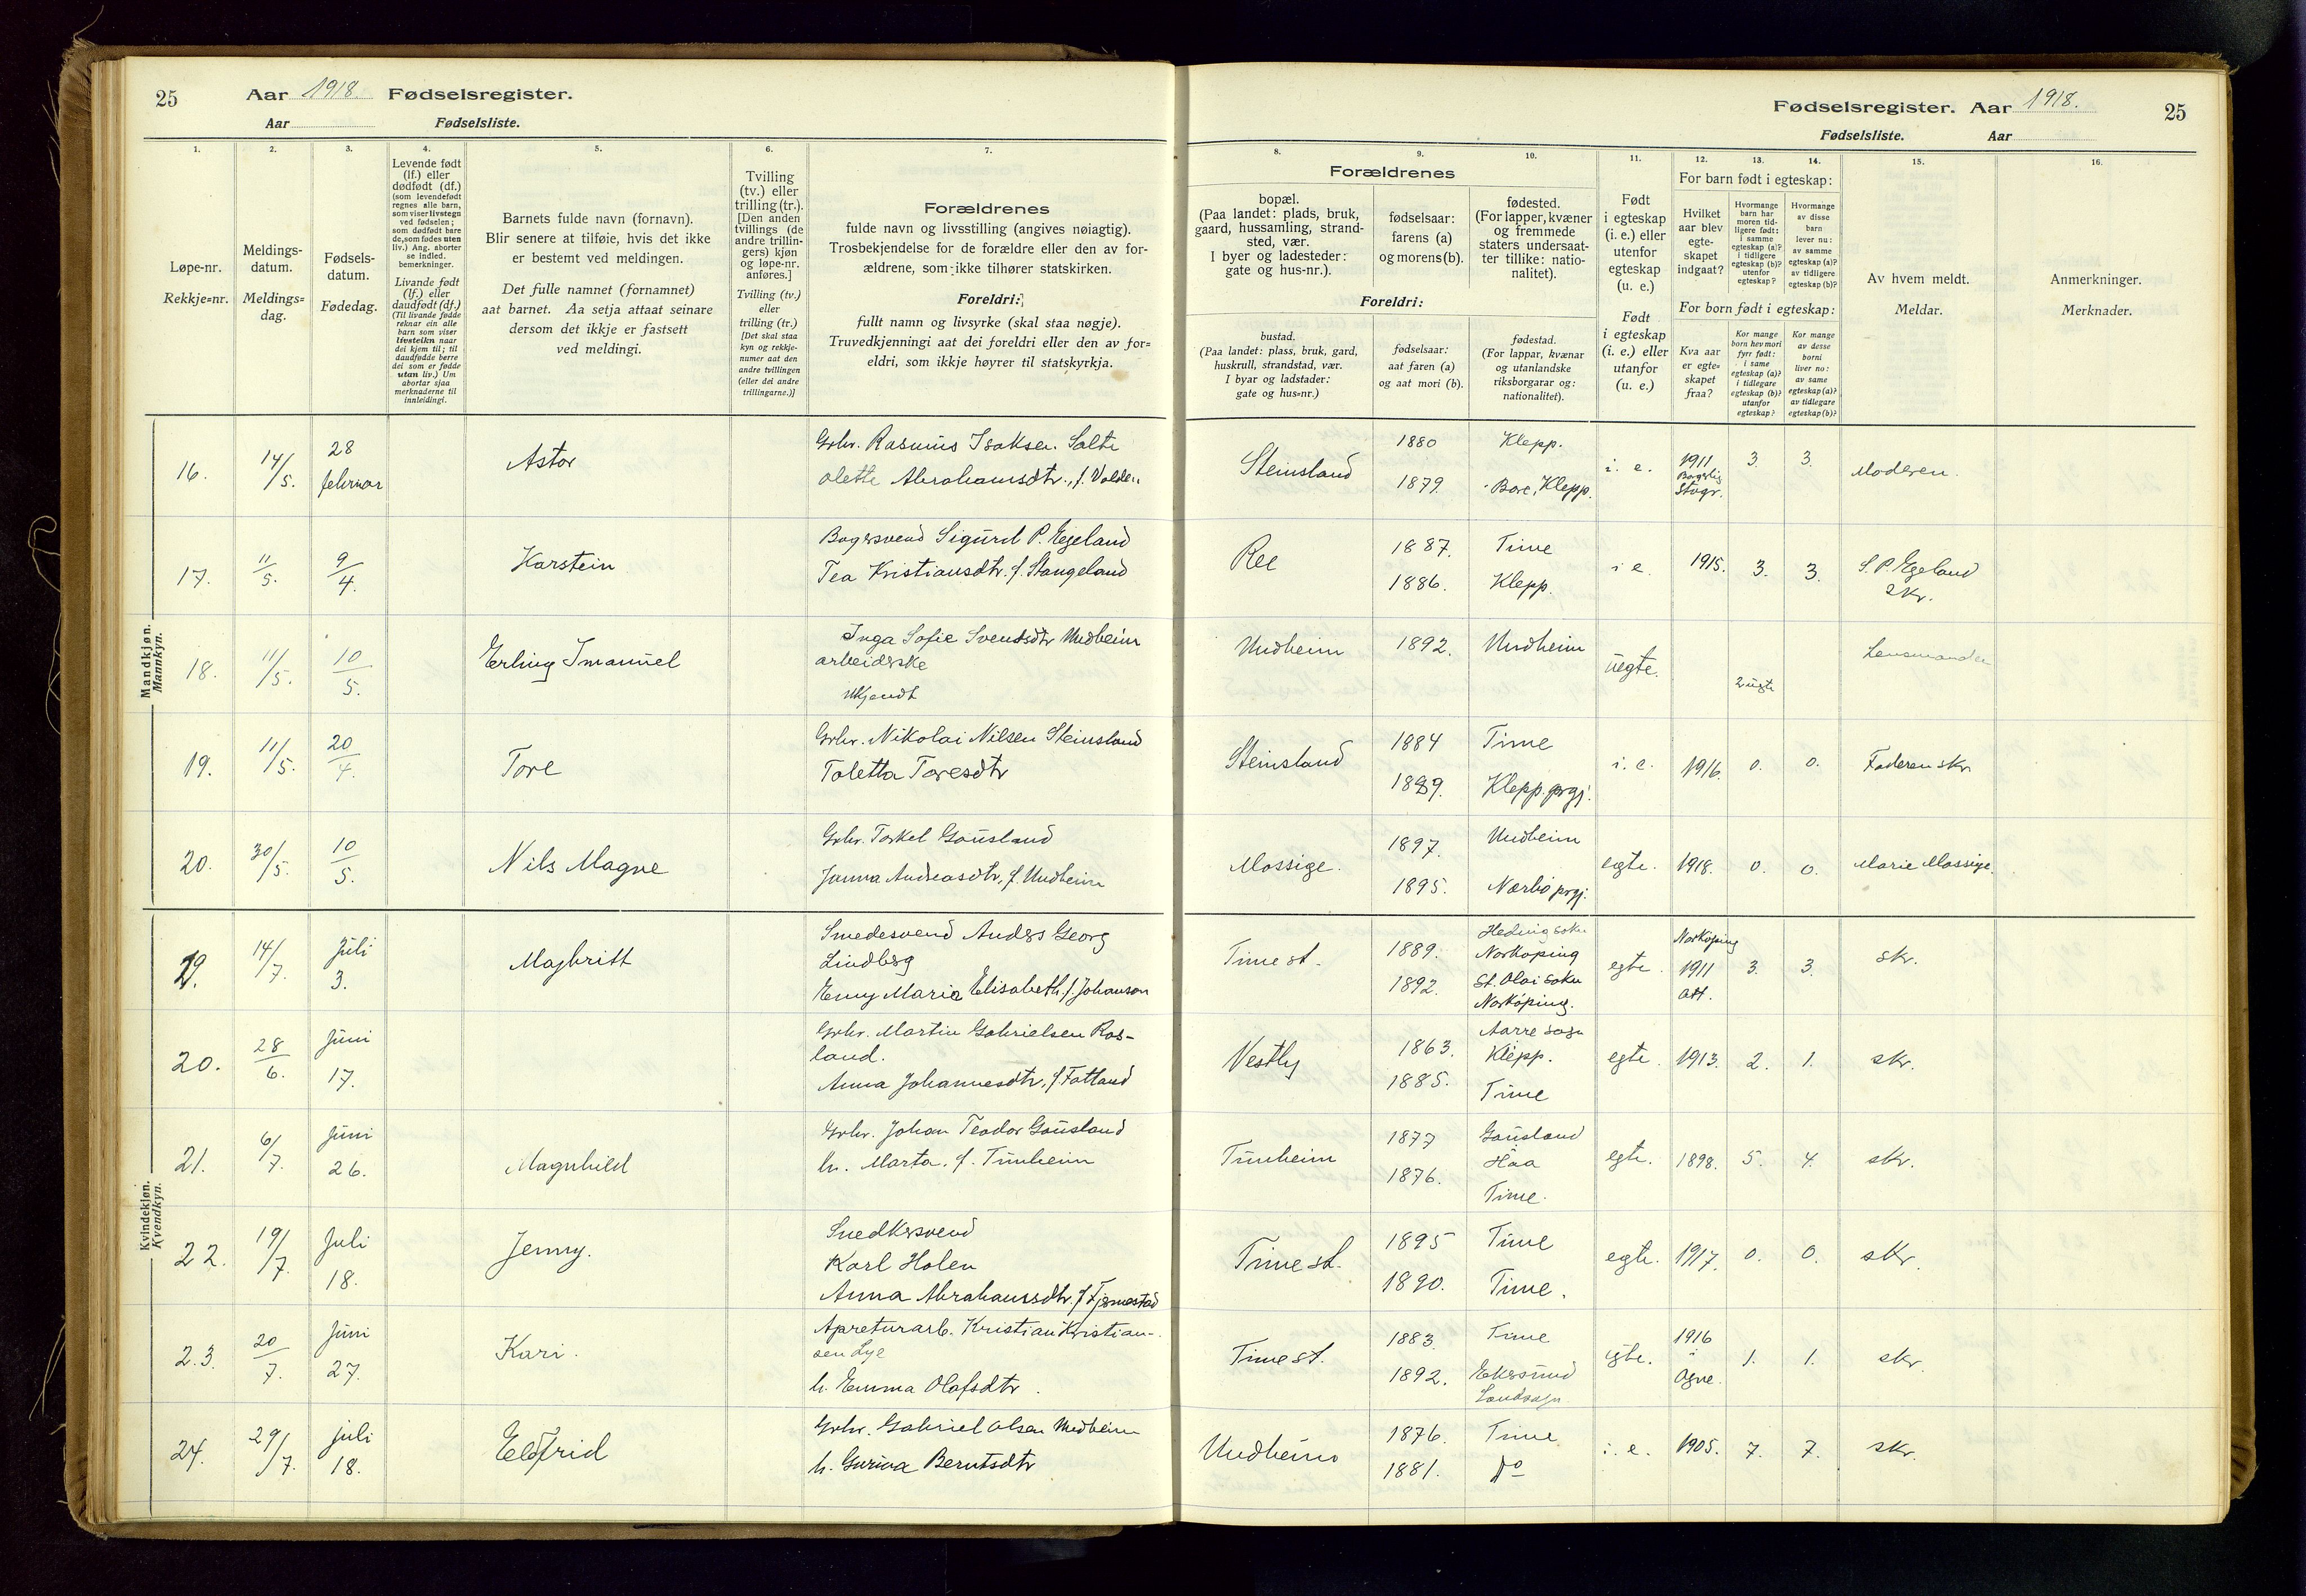 25
Aar 1918. Fødselsregister.
Aar
Fødselsliste.
Fødselsregister. Aar 1918.
25
Fødselsliste.
Aar
1.
Løpe-nr.
Rekkje=nr.
2.
Meldings-
datum.
Meldings=
dag.
3.
Fødsels-
datum.
Fødedag.
4.
Levende født
(lf.) eller
dødfødt (df.)
(som levendefødt
regnes alle barn,
som viser livstegn
ved fødselen;
som dødfødt bare
de, som fødes uten
liv.) Ang. aborter
se indled.
bemerkninger.
Livande født
(lf.) eller
daudfødt (df.)
(Til livande fødde
reknar ein alle
barn som viser
livsteikn naar
dei kjem til; til
daudfødde berre
dei som er fødde
utan liv.) Um
abortar sjaa
merknaderne til
innleidingi.
5.
Barnets fulde navn (fornavn).
Blir senere at tilføie, hvis det ikke
er bestemt ved meldingen.
Det fulle namnet (fornamnet)
aat barnet. Aa setja attaat seinare
dersom det ikkje er fastsett
ved meldingi.
6.
Tvilling
(tv.) eller
trilling (tr.).
[Den anden
tvillings (de
andre trillin-
gers) kjøn
og løpe-nr.
anføres.]
Tvilling (tv.)
eller
trilling (tr.)
[Det skal staa
kyn og rekkje-
numer aat den
andre tvillingen
(eller dei andre
trillingarne.)]
7.
Forældrenes
fulde navn og livsstilling (angives nøiagtig).
Trosbekjendelse for de forældre eller den av for-
ældrene, som ikke tilhører statskirken.
Foreldri:
fullt namn og livsyrke (skal staa nøgje).
Truvedkjenningi aat dei foreldri eller den av for=
eldri, som ikkje høyrer til statskyrkja.
Forældrenes
8.
bopæl.
(Paa landet: plads, bruk,
gaard, hussamling, strand-
sted, vær.
I byer og ladesteder:
gate og hus-nr.).
Foreldri:
bustad.
(Paa landet: plass, bruk, gard,
huskrull, strandstad, vær.
I byar og ladstader:
gate og hus=nr.)
9.
fødselsaar:
farens (a)
og morens (b).
fødselsaar:
aat faren (a)
og aat mori (b).
10.
fødested.
(For lapper, kvæner
og fremmede
staters undersaat-
ter tillike: natio-
nalitet).
fødestad.
(For lappar, kvænar
og utanlandske
riksborgarar og:
nationalitet).
11.
Født
i egteskap
(i. e.) eller
utenfor
egteskap
(u. e.)
Født
i egteskap
(i. e.) eller
utanfor
(u. e.)
For barn født i egteskap:
12.
Hvilket
aar blev
egte-
skapet
indgaat?
For born født i egteskap:
Kva aar
er egte=
skapet
fraa?
13.
Hvormange
barn har
moren tid-
ligere født:
i samme
egteskap (a)?
i tidligere
egteskap (b)?
utenfor
egteskap?
Kor mange
born hev mori
fyrr født:
i same
egteskap (a)?
i tidlegare
egteskap (b)?
utanfor
egteskap?
14.
Hvormange
av disse
barn
lever nu:
av samme
egteskap (a)?
av tidligere
egteskap (b)?
Kor mange
av desse
borni
liver no:
av same
egteskap (a)?
av tidlegare
egteskap (b)?
15.
Av hvem meldt.
Meldar.
16.
Anmerkninger.
Merknader.
Mandkjøn.
Mannkyn.
16. 14/5. 28 februar Astor Grbr. Rasmus Isaksen Salte
Olette Abrahamsdtr., f. Volden
Steinsland 1880 Klepp.
1879. Bore, Klepp. i. e. 1911 Borgerlig Stvgr. 3. 3. Moderen.
17. 11/5. 9/4. Karstein Bagersvend Sigurd P. Egeland
Tea Kristiansdtr. f. Stangeland
Ree 1887. Time
1886. Klepp. i e. 1915. 3. 3. S. P. Egeland
skr.
18. 11/5. 10/5. Erling Imanuel Inga Sofie Svendsdtr Undheim
arbeiderske
Ukjendt
Undheim 1892. Undheim uegte. 2 uegte Lensmanden
19. 11/5. 20/4. Tore Grbr. Nikolai Nilsen Steinsland
Toletta Toresdtr
Steinsland 1884 Time
1889. Klepp. prgj. i. e. 1916. 0. 0. Faderen skr
20. 30/5. 10/5. Nils Magne Grbr. Torkel Gausland
Janna Andreasdtr, f. Undheim
Mossige. 1897. Undheim
1895. Nærbø prgj. egte. 1918. 0. 0. Marie Mossige.
Kvindekjøn.
Kvendkyn.
19. 14/7. Juli 3. Majbritt Smedesvend Anders Georg
Lindberg
Emy Maria Elisabeth f. Johanson
Time st. 1889. Hedvig sokn
Norköping
1892. St. Olai sokn
Norköping. egte. Norköping
1911
Ott. 3. 3. skr.
20. 28/6. Juni 17. Grbr. Martin Gabrielsen Ros-
land.
Anna Johannesdtr, f Fotland
Vestly 1863. Aarre sogn
Klepp.
1885. Time egte. 1913. 2. 1. skr.
21. 6/7. Juni 26. Magnhild Grbr. Johan Teodor Gausland
h. Marta. f. Tunheim
Tunheim 1877 Gausland
Haa
1876. Time. egte. 1898. 5. 4. skr.
22. 19/7. Juli 18. Jenny. Snedkersvend
Karl Holen
Anna Abrahamsdtr. f Fjermestad
Time st. 1895 Time
1890. Time. egte. 1917. 0. 0. skr.
23. 20/7. Juni 27. Kari. Apreturarb. Kristian Kristian-
sen Lye
h. Emma Olafsdtr.
Time st. 1883. Time
1892. Ekersund
Landsogn egte. 1916
Ogne. 1. 1. skr.
24. 29/7. juli 18. Eldfrid Grbr. Gabriel Olsen Undheim
h. Gurina Berntsdtr
Undheim 1876. Time
1881. Do i. e. 1905. 7. 7. skr.